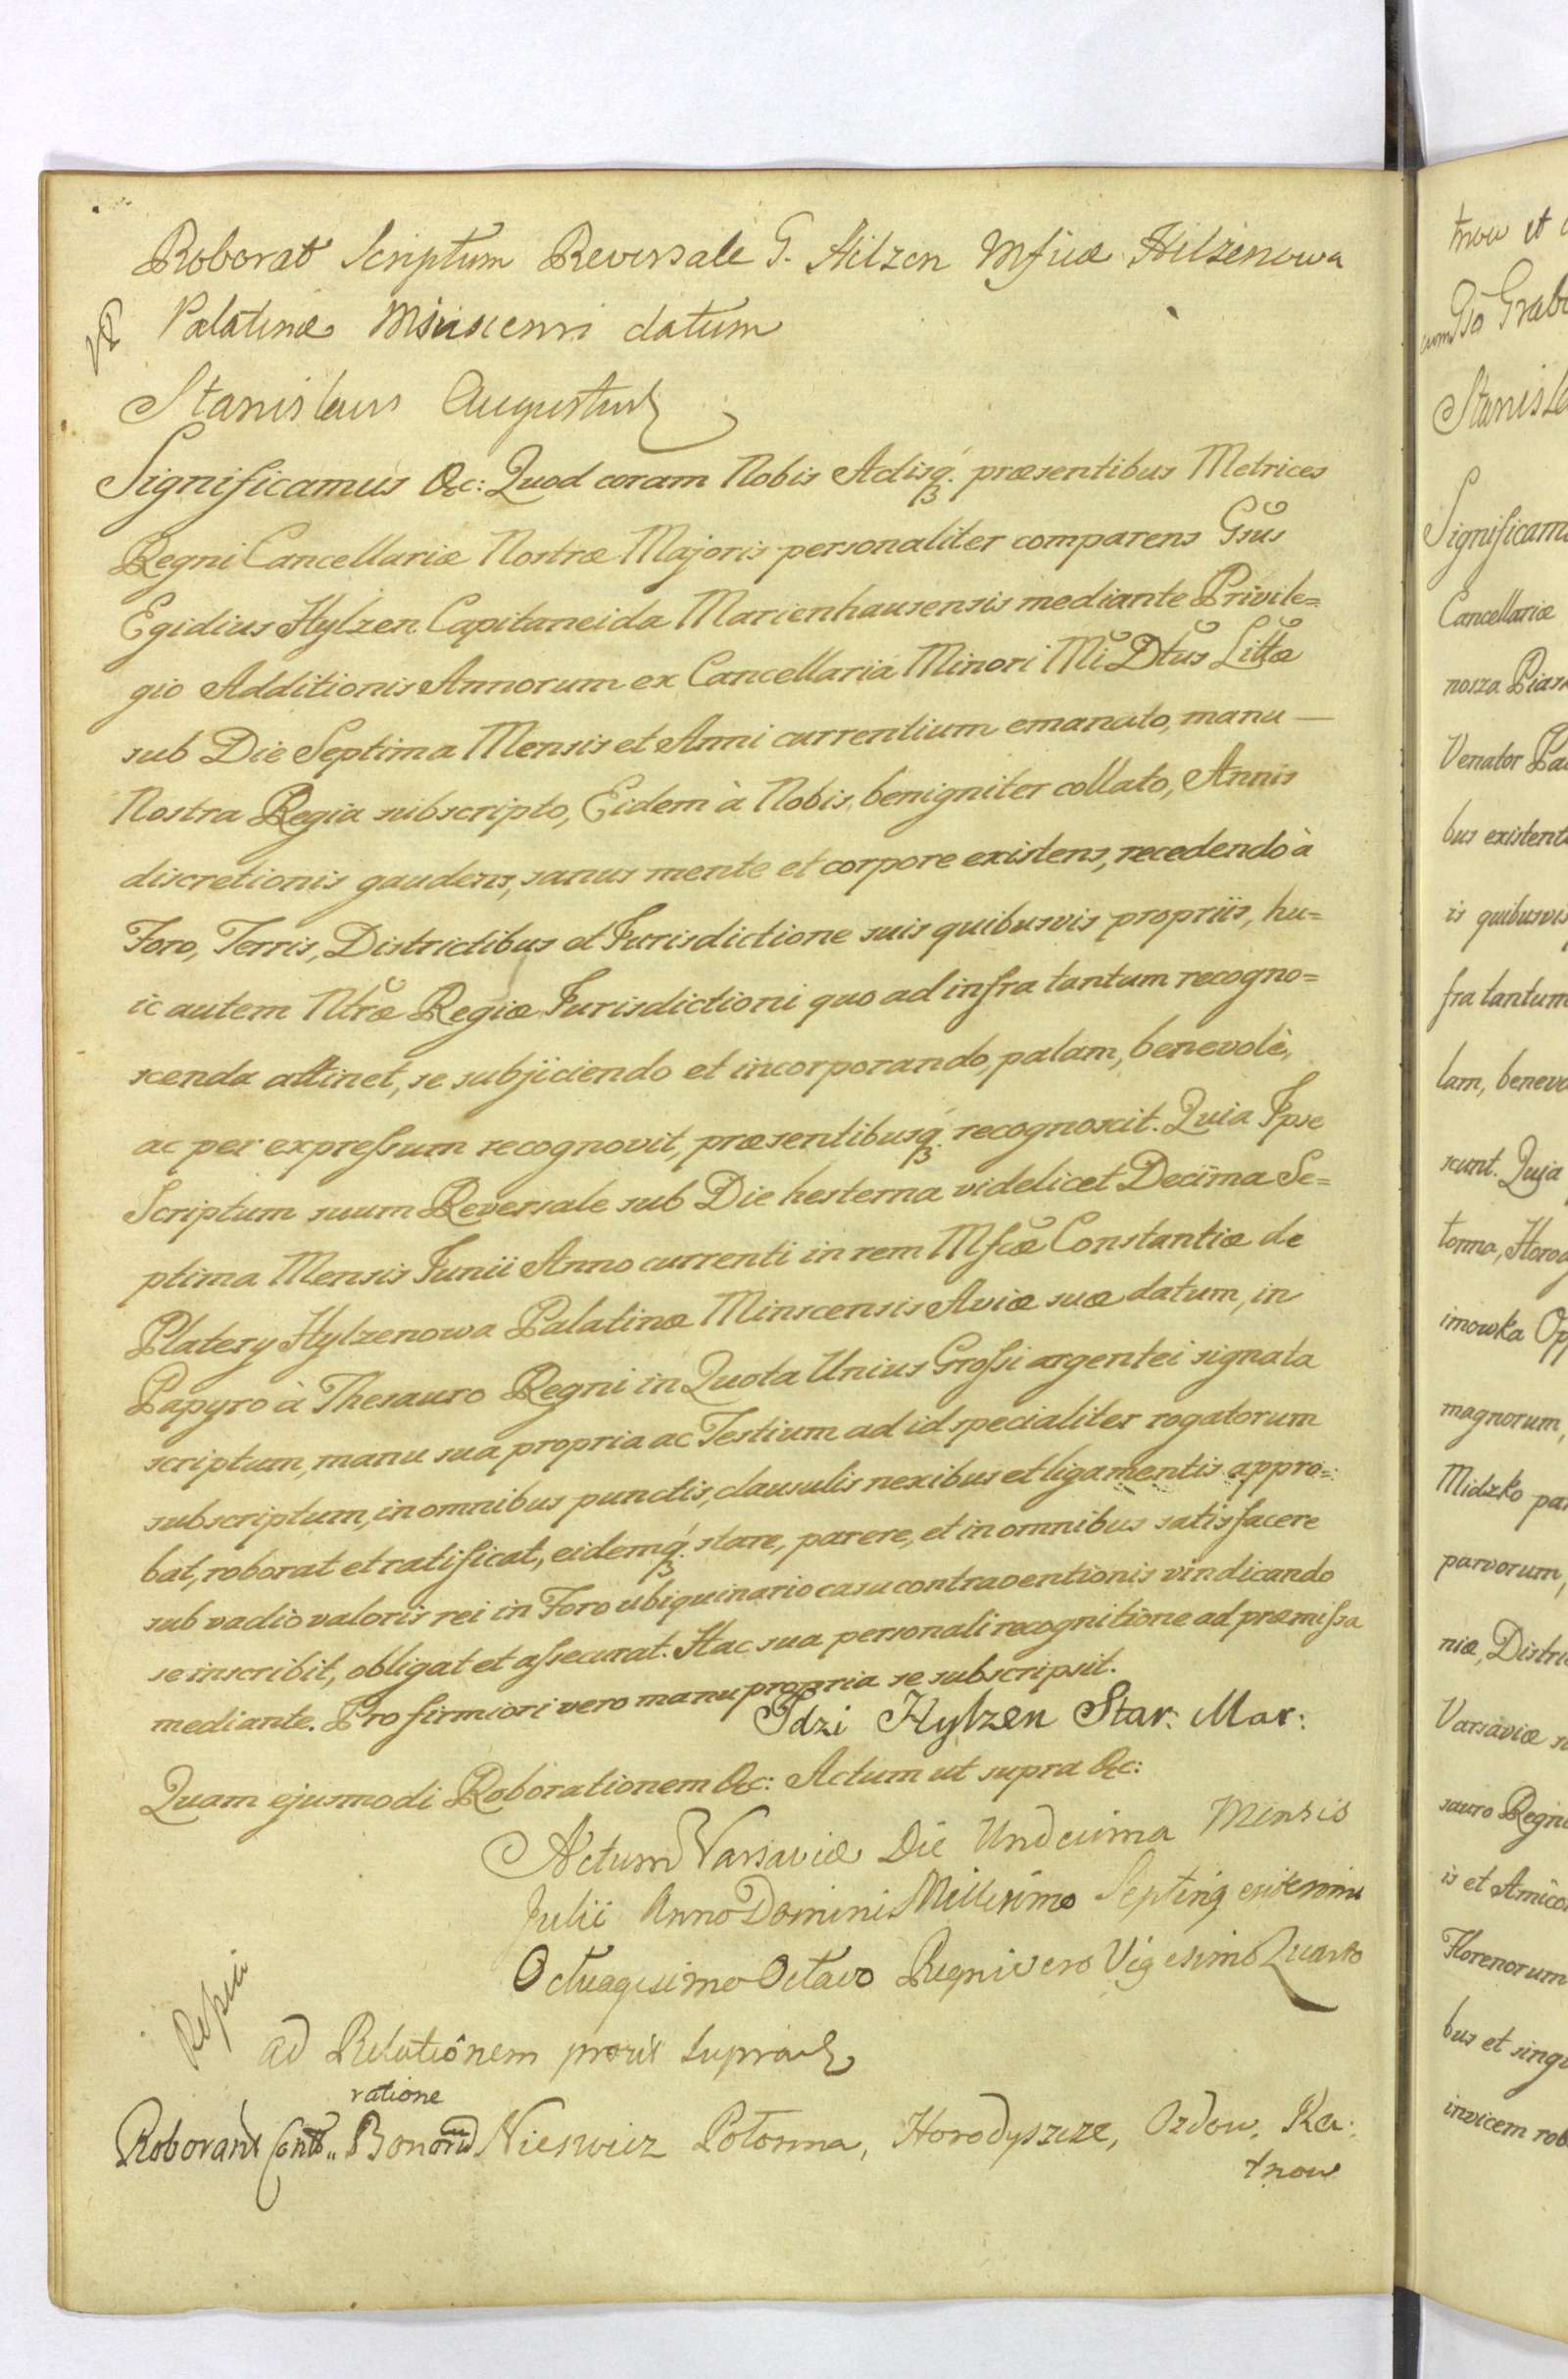 Roborat Scriptum Reversale G. Hilzen Mficæ Hilzenowa
Palatinæ Minscensi datum
Stanislaus Augustus
Significamus &c: Quod coram Nobis Actisq́ʒ præsentibus Metrices
Regni Cancellariæ Nostræ Majoris personaliter comparens Gsus
Egidius Hylzen Capitaneida Marienhausensis mediante Privile=
gio Additionis Annorum ex Cancellaria Minori Mi Dtus Littæ
sub Die Septima Mensis et Anni currentium emanato, manu —
Nostra Regia subscripto, Eidem à Nobis benigniter collato, Annis
discretionis gaudens, sanus mente et corpore existens, recedendo à
Foro, Terris, Districtibus et Jurisdictione suis quibusvis propriis, hu=
ic autem Ntræ Regiæ Jurisdictioni quo ad infra tantum recogno=
scenda attinet, se subjiciendo et incorporando, palam, benevolè,
ac per expressum recognovit, præsentibusq́ʒ recognoscit. Quia Ipse
Scriptum suum Reversale sub Die hesterna videlicet Decima Se=
ptima Mensis Junii Anno currenti in rem Mfcæ Constantiæ de
Platery Hylzenowa Palatinæ Minscensis Aviæ suæ datum, in
Papyro à Thesauro Regni in Quota Unius Grossi argentei signata
scriptum, manu sua propria ac Testium ad id specialiter rogatorum
subscriptum, in omnibus punctis, clausulis nexibus et ligamentis appro=
bat, roborat et ratificat, eidemq́ʒ stare, parere, et in omnibus satisfacere
sub vadio valoris rei in Foro ubiquinario casu contraventionis vindicando
se inscribit, obligat et assecurat. Hac sua personali recognitione ad præmissa
mediante. Pro firmiori vero manu propria se subscripsit.
Idzi Hylzen Star: Mar:
Quam ejusmodi Roborationem &c: Actum ut supra &c:
Actum Varsaviæ Die Undecima Mensis
Julii Anno Domini Millesimo Septingentesimo
Octuagesimo Octavo Regni vero Vigesimo Quarto
ad Relationem prout supra
ratione
Roborant Contr. Bonorũ Nieswicz Połonna, Horodyszcze, Ozdow, Ka:
tnow
tnow et
cum Gso Grab
Stanisl
Significam
Cancellariæ
nosza Pias
Venator Pa
bus existent
is quibusvis
fra tantum
lam, benevo
scunt. Quja
tonna, Horod
imowka Op
magnorum,
Midzko pa
parvorum,
niæ, Distri
Varsaviæ s
sauro Regni
is et Amico
Florenorum
bus et singu
invicem rob